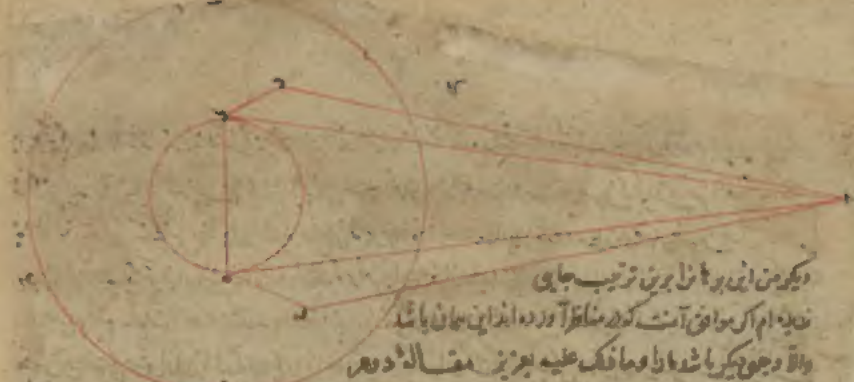 دیکر من این برهانرا برین ترتیب جایی
ندیده ام اکر موافق آنست که در مناظر آورده اند این همان باشد
والا وجهی دیکر باشد و ما ذلک علیه بعزیز مقاله دوم